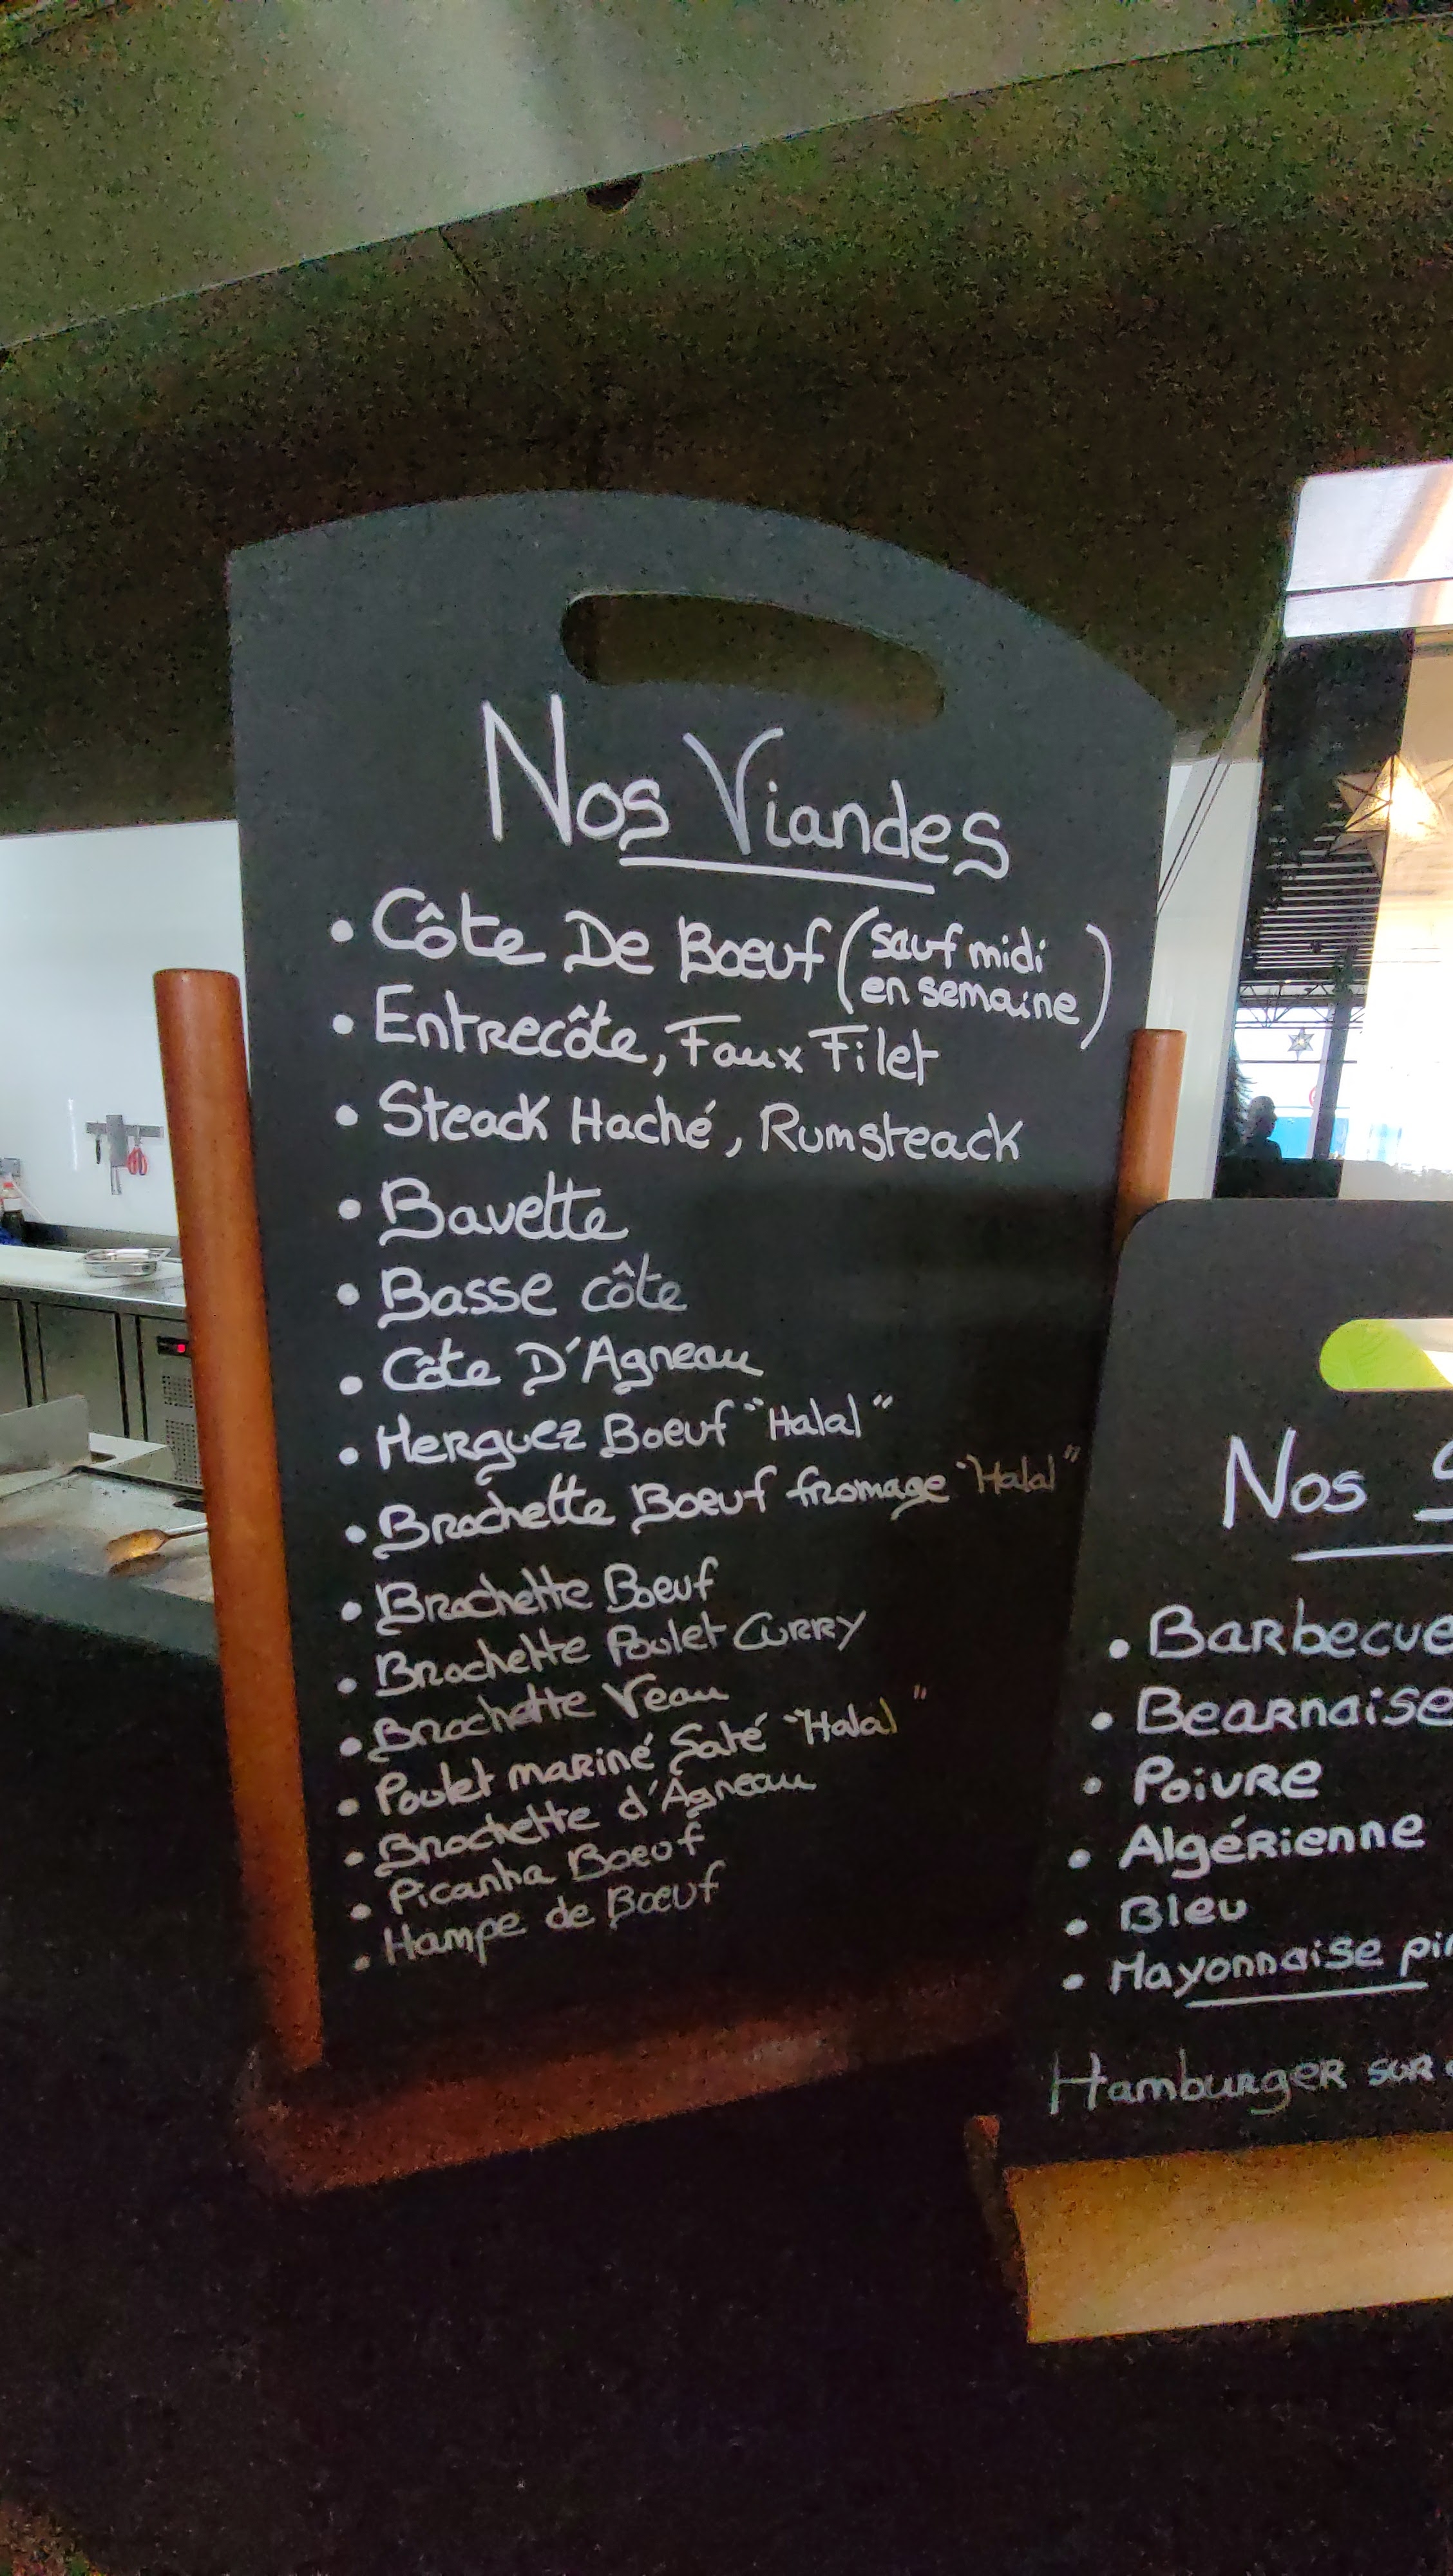 Nos Viandes
• Côte De Bœuf (sauf midi
en semaine)
• Entrecôte, Faux Filet
• Steack Haché, Rumsteack
• Bavette
• Basse côte
• Côte D'Agneau
• Merguez Boeuf "Halal"
• Brochette Boeuf fromage "Halal"
• Brochette Boeuf
• Brochette Poulet Curry
• Brochette Veau
• Poulet mariné Saté "Halal"
• Brochette d'Agneau
• Picanha Boeuf
• Hampe de Bœuf
Nos
• Barbecue
• Bearnaise
• Poivre
• Algérienne
• Bleu
• Mayonnaise
Hamburger sur